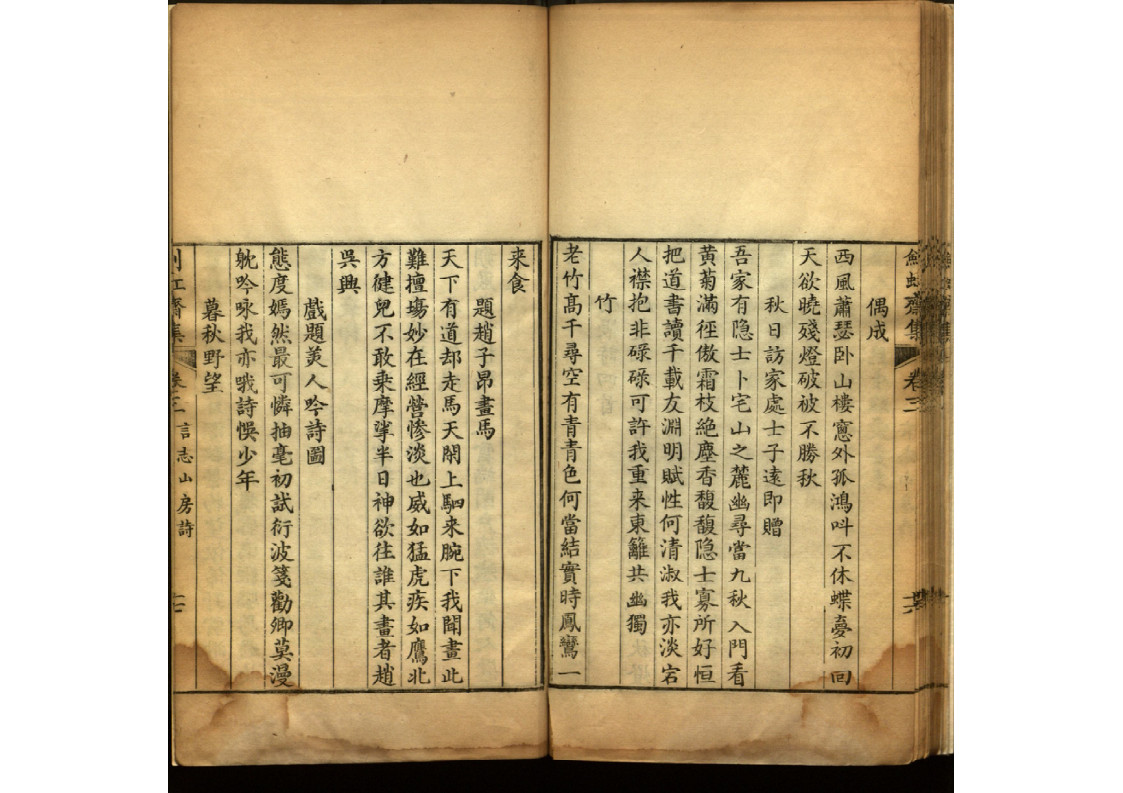 齋集 卷三
偶成
西風蕭瑟卧山樓窻外孤鴻呌不休蝶夣初回
天欲曉殘燈破被不勝秋
秋日訪家處士子遠即贈
吾家有隐士卜宅山之麓幽尋當九秋入門看
黄菊滿徑傲霜枝絶塵香馥馥隐士寡所好恒
把道書讀千載友淵明賦性何清淑我亦淡宕
人襟抱非碌碌可許我重来東籬共幽獨
竹
老竹髙千尋空有青青色何當結實時鳳鸞一
来食
題趙子昂畫馬
天下有道却走馬天閑上駟来腕下我聞畫此
難擅塲妙在經營惨淡也威如猛虎疾如鷹北
方健兒不敢乗摩挲半日神欲往誰其畫者趙
吳興
戲題美人吟詩圖
態度嫣然最可憐抽毫初試衍波箋勸卿莫漫
躭吟咏我亦哦詩悞少年
暮秋野望
齋集 卷三 言志山房詩